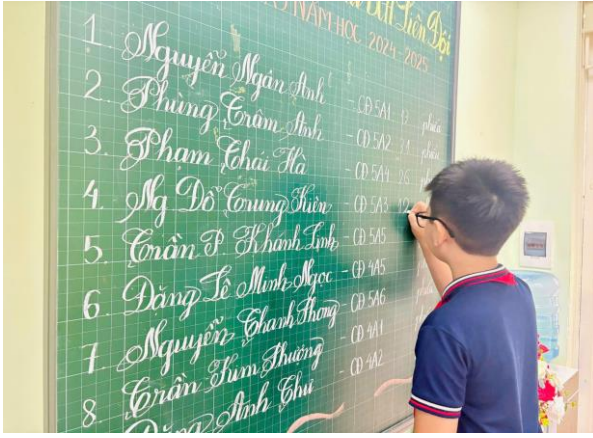 BCH Liên Đội
NĂM HỌC 2024 - 2025
1. Nguyễn Ngân Anh - CĐ 5A1 17 phiếu
2. Phùng Trâm Anh - CĐ 5A2 21 phiếu
3. Phạm Thái Hà - CĐ 5A4 26 phiếu
4. Ng Đỗ Trung Kiên - CĐ 5A3 12
5. Trần P Khánh Linh - CĐ 5A5
6. Đặng Lê Minh Ngọc - CĐ 4A5 phiếu
7. Nguyễn Thanh Phong - CĐ 5A6
8. Trần Kim Phượng - CĐ 4A1
Đặng Anh Thư - CĐ 4A2